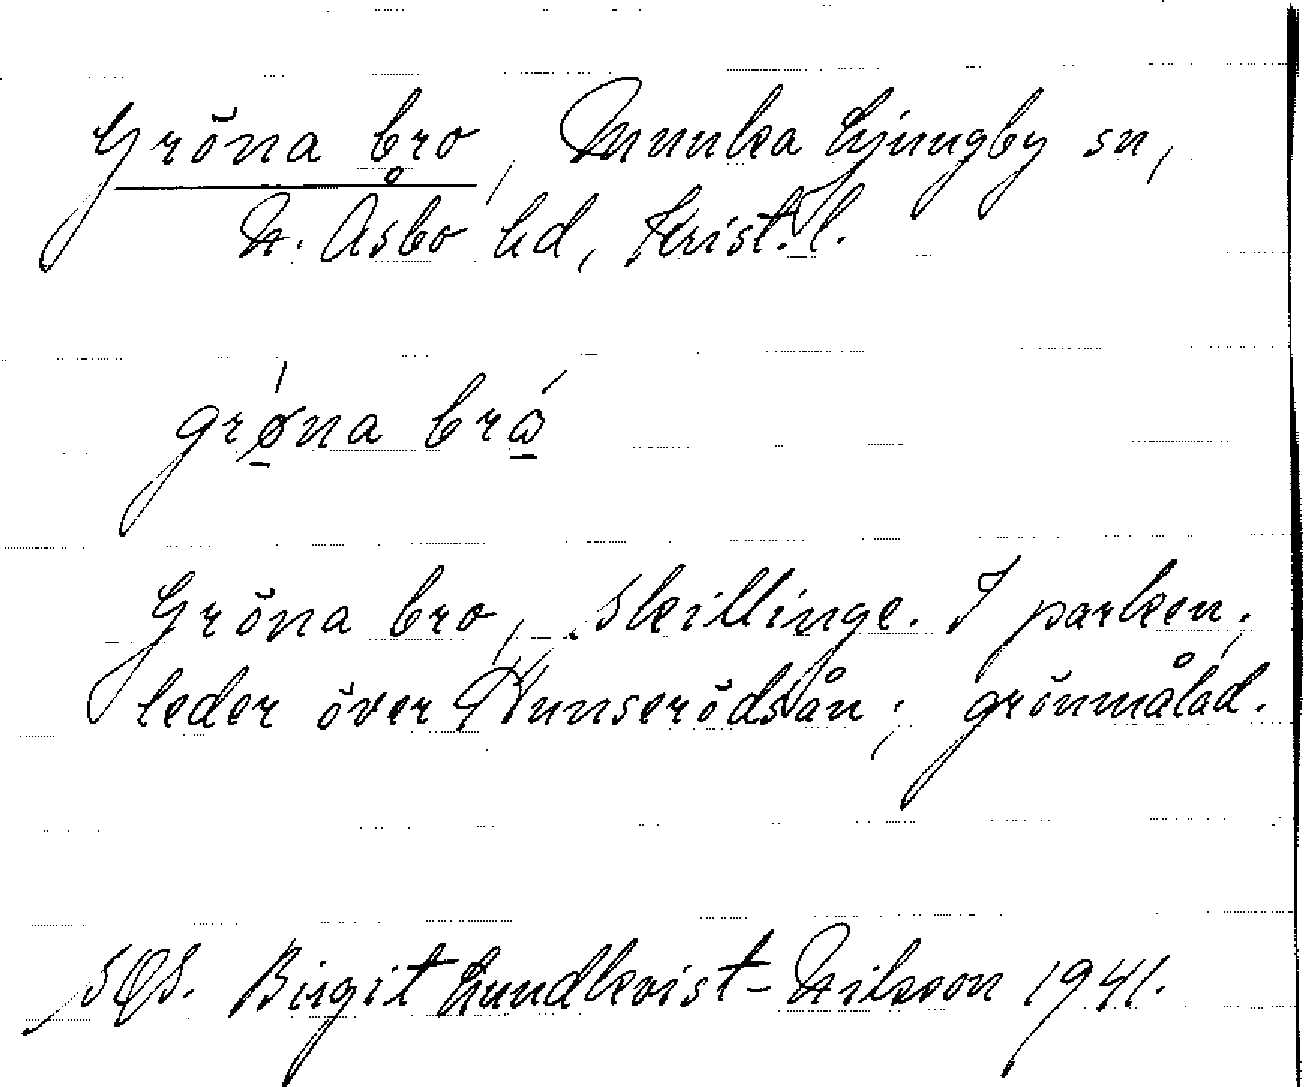 Gröna bro, Munka Ljungby sn,
N. Åsbo hd, Krist. l.
grøna brω
Gröna bro, Skillinge. I parken;
leder över Runserödsån; grönmålad.
Birgit Lundkvist-Nilsson 1941.